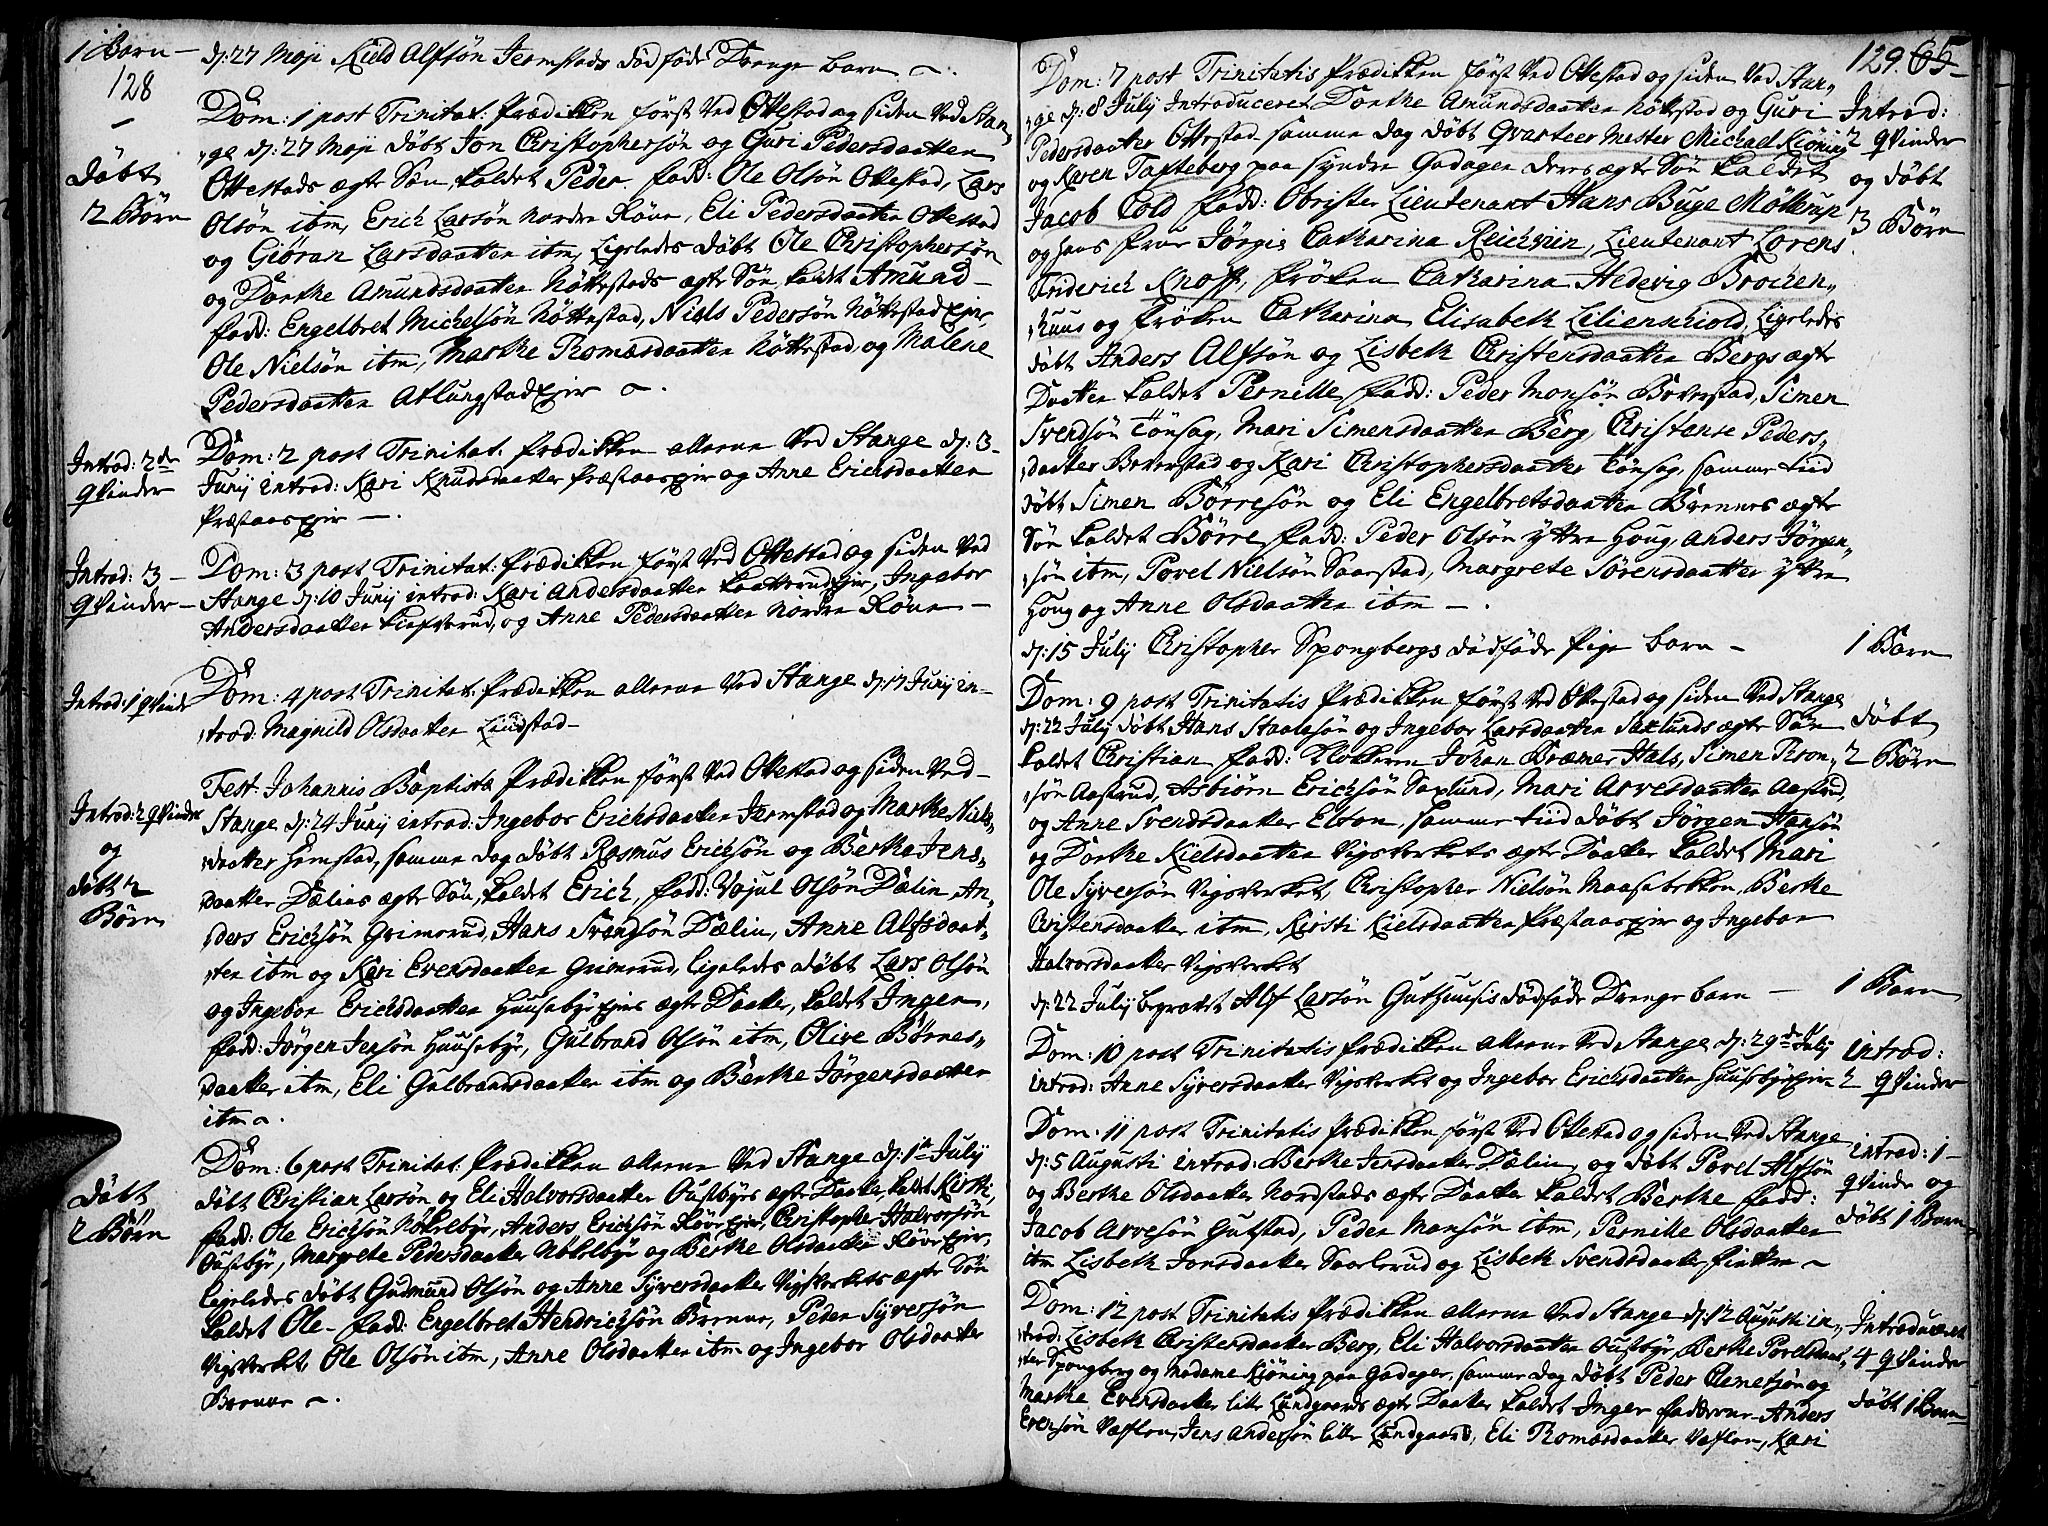 1 Barn –
128
d: 27 Maji Kield Alfsøn Jermstads dødføde Drenge barn
Dom: 1 post Trinitat: Prædiken først Ved Ottestad og siden Ved Stan,,
,,ge d: 27 Maji døbt Jon Christophersøn og Guri Pedersdaatter
døbt
2 Børn
Ottestads ægte Søn kaldet Peder. fadd: Ole Olsøn Ottestad, Lars
Olsøn itm, Erich Larsøn Nordre Røne, Eli Pedersdaatter Ottestad
og Giøran Larsdaatter itm, Ligeledes døbt Ole Christophersøn
og Dorthe Amundsdaatter Nøttestads ægte Søn kaldt Amund –
fadd: Engelbret Michelsøn Nøttestad, Niels Pedersøn Nøttestad Ejer,
Ole Nielsøn itm, Marthe Tomasdaatter Nøttestad, og Malene
Pedersdaatter Atlungstad Ejer
Introd: 2de
qvinder
Dom: 2 post Trinitat: Prædiken allene Ved Stange d: 3
Junij introd: Kari Knudsdaatter Præstaas Ejer og Anne Erichsdaatter
Præstaas Ejer –
Introd: 3 –
qvinder –
Dom: 3 post Trinitat: Prædiken først Ved Ottestad og siden Ved
Stange d: 10 Junij introd: Kari Andersdaatter Ejer, Ingebor
Andersdaatter og Anne Pedersdaatter Nordre Røne –
Introd: 1 qvinde
Dom: 4 post Trinitat: Prædiken allene Ved Stange d: 17 Junij in–
,,trod: Magnild Olsdaatter Lindstad –
Introd: 2 qvinder
og
døbt 2
Børn
Fest: Johannis Baptistæ Prædiken først Ved Ottestad og siden Ved –
Stange d: 24 Junij introd: Ingebor Erichsdaatter Jermstad og Marthe Niels,,
,,daatter Hemstad, samme dag døbt Rasmus Erichsøn og Berthe Jens,,
,,daatter Dælins ægte Søn, kaldet Erich, fadd: Olsøn Dælin, An,,
,,ders Erichsøn Grimerud, Hans Svendsøn Dælin, Anne Alfsdaat,,
,,ter itm og Kari Evensdaatter Grimerud, ligeledes døbt Lars Olsøn
og Ingebor Erichsdaatter Huusebye Ejers ægte Daatter, kaldet Inger,
fadd: Jørgen Jensøn Huusebye, Gulbrand Olsøn itm, Olive Børnes,,
daatter itm, Eli Gulbransdaatter itm og Berthe Jørgensdaatter
itm
døbt
2 Børn
Dom: 6 post Trinitat: Prædiken allene Ved Stange d: 1te July
døbt Christian Larsøn og Eli Halvorsdaatter Oustbyes ægte Daatter kaldet Kirsti,
fadd: Ole Erichsøn Nøkelbye, Anders Erichsøn Røne Ejer, Christopher Halvorsøn
Oustbye, Margrete Pedersdaatter Nøkelbye og Berthe Olsdaatter Røne Ejer,
ligeledes døbt Gudmund Olsøn og Anne Syversdaatter Vigsverkets ægte Søn
kaldet Ole – fadd: Engelbret Hendrichsøn Brenne, Peder Syversøn
Vigsverket Ole Olsøn itm, Anne Olsdaatter itm og Ingebor Olsdaatter
Brenne
129. 65
Dom: 7 post Trinitatis Prædiken først Ved Ottestad og siden Ved Stan,,
,,ge d: 8 July Introduceret Dorthe Amundsdaatter Nøttestad og Guri
Pedersdaatter Ottestad. samme dag døbt Qvarteer Mester Michael Kiøning
og Karen Tafteberg paa Syndre Gadagen deres ægte Søn kaldet
Jacob Cold fadd: Obrister Lieutenant Hans Buge Møllrup
og hans frue Jørgis Catharina Reichwin, Lieutenant Lorens
Friderich Knoff, frøken Catharina Hedevig Brochen,,
,,huus og frøken Catharina Elisabeth Lilienschiold, Ligeledes
Introd:
2 qvinder
og døbt
3 Børn
døbt Anders Alfsøn og Lisbeth Christensdaatter Bergs ægte
Daatter kaldet Pernille, fadd: Peder Monsøn Beverstad, Simen
Svendsøn Tønsag, Mari Simensdaatter Berg, Christense Peders,,
,,daatter Beverstad og Kari Christophersdaatter Tønsag, samme tiid
døbt Simen Børresøn og Eli Engelbretsdaatter Brennes ægte
Søn kaldet Børre, fadd: Peder Olsøn yttre Houg, Anders Jørgen,,
,,søn itm, Povel Nielsøn Saarstad, Margrete Sørensdaatter yttre
Houg og Anne Olsdaatter itm –
d: 15 July Christopher Spongbergs dødføde Pige barn –
1 Barn
Dom: 9 post Trinitatis Prædiken først Ved Ottestad og siden Ved Stange
d: 22 July døbt Hans Staalesøn og Ingebor Larsdaatter Saxlunds ægte Søn
kaldet Christian fadd: Klokkeren Johan Bræmer Hals, Simen Tron,,
,,søn Aastrud, Asbiørn Erichsøn Saxlund, Mari Arvesdaatter Aastrud,
og Anne Svendsdaatter Elton, samme tiid døbt Jørgen Hansøn
og Dorthe Kielsdaatter Vigsverkets ægte Daatter kaldet Mari
Ole Syversøn Vigsverket, Christopher Nielsøn Maasebekken, Berthe
Christensdaatter itm, Kirsti Kielsdaatter Præstaas Ejer og Ingebor
Halvorsdaatter Vigsverket
døbt
2 Børn
d: 22 July begravet Alf Larsøn Guthuusis dødføde Drenge barn –
1 Barn
Dom: 10 post Trinitatis Prædiken allene Ved Stange d: 29de July
introd: Anne Syversdaatter Vigsverket og Ingebor Erichsdaatter Huusebye Ejer
introd:
2 qvinder
Dom: 11 post Trinitatis Prædiken først Ved Ottestad og siden Ved Stange
d: 5 Augusti introd: Berthe Jensdaatter Dælin, og døbt Povel Alfsøn
og Berthe Olsdaatter Nordstads ægte Daatter kaldet Berthe fadd:
Jacob Arvesøn Gutstad, Peder Mansøn itm, Pernille Olsdaatter
itm Lisbeth Jonsdaatter Saarlerud og Lisbeth Svendsdaatter Finthen
introd: 1 –
qvinde og
døbt 1 Barn
Dom: 12 post Trinitatis Prædiken allene Ved Stange d: 12 Augusti in,,
,,trod: Lisbeth Christensdaatter Berg, Eli Halvorsdaatter Oustbye, Berthe Povelsdaat,,
,,ter Spongberg og Madame Kiøning paa Gadagen, samme dag døbt Peder Clemetsøn og
Marthe Evensdaatter lille Lundgaards ægte Daatter kaldet Inger fadderne Anders
Evensøn Vaflen, Jens Andersøn lille Lundgaard, Eli Tomasdaatter Vaflen, Kari
Introduceret
4 qvinder
døbt 1 Barn